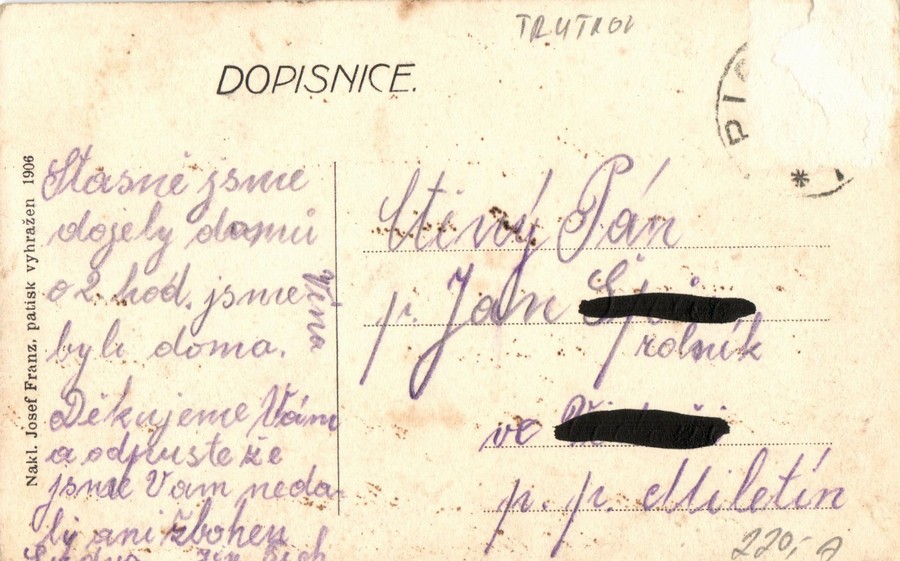 TRUTNOV
DOPISNICE.
PIS
Nakl. Josef Franz, patisk vyhražen 1906
Stasně jsme
dojely domů
o 2 hod. jsme
byli doma.
Děkujeme Vám
a odpuste že
jsme Vam neda-
ly ani zbohen
Ctěný Pán
p. Jan
rolník
ve
p. p. Miletín
220,-